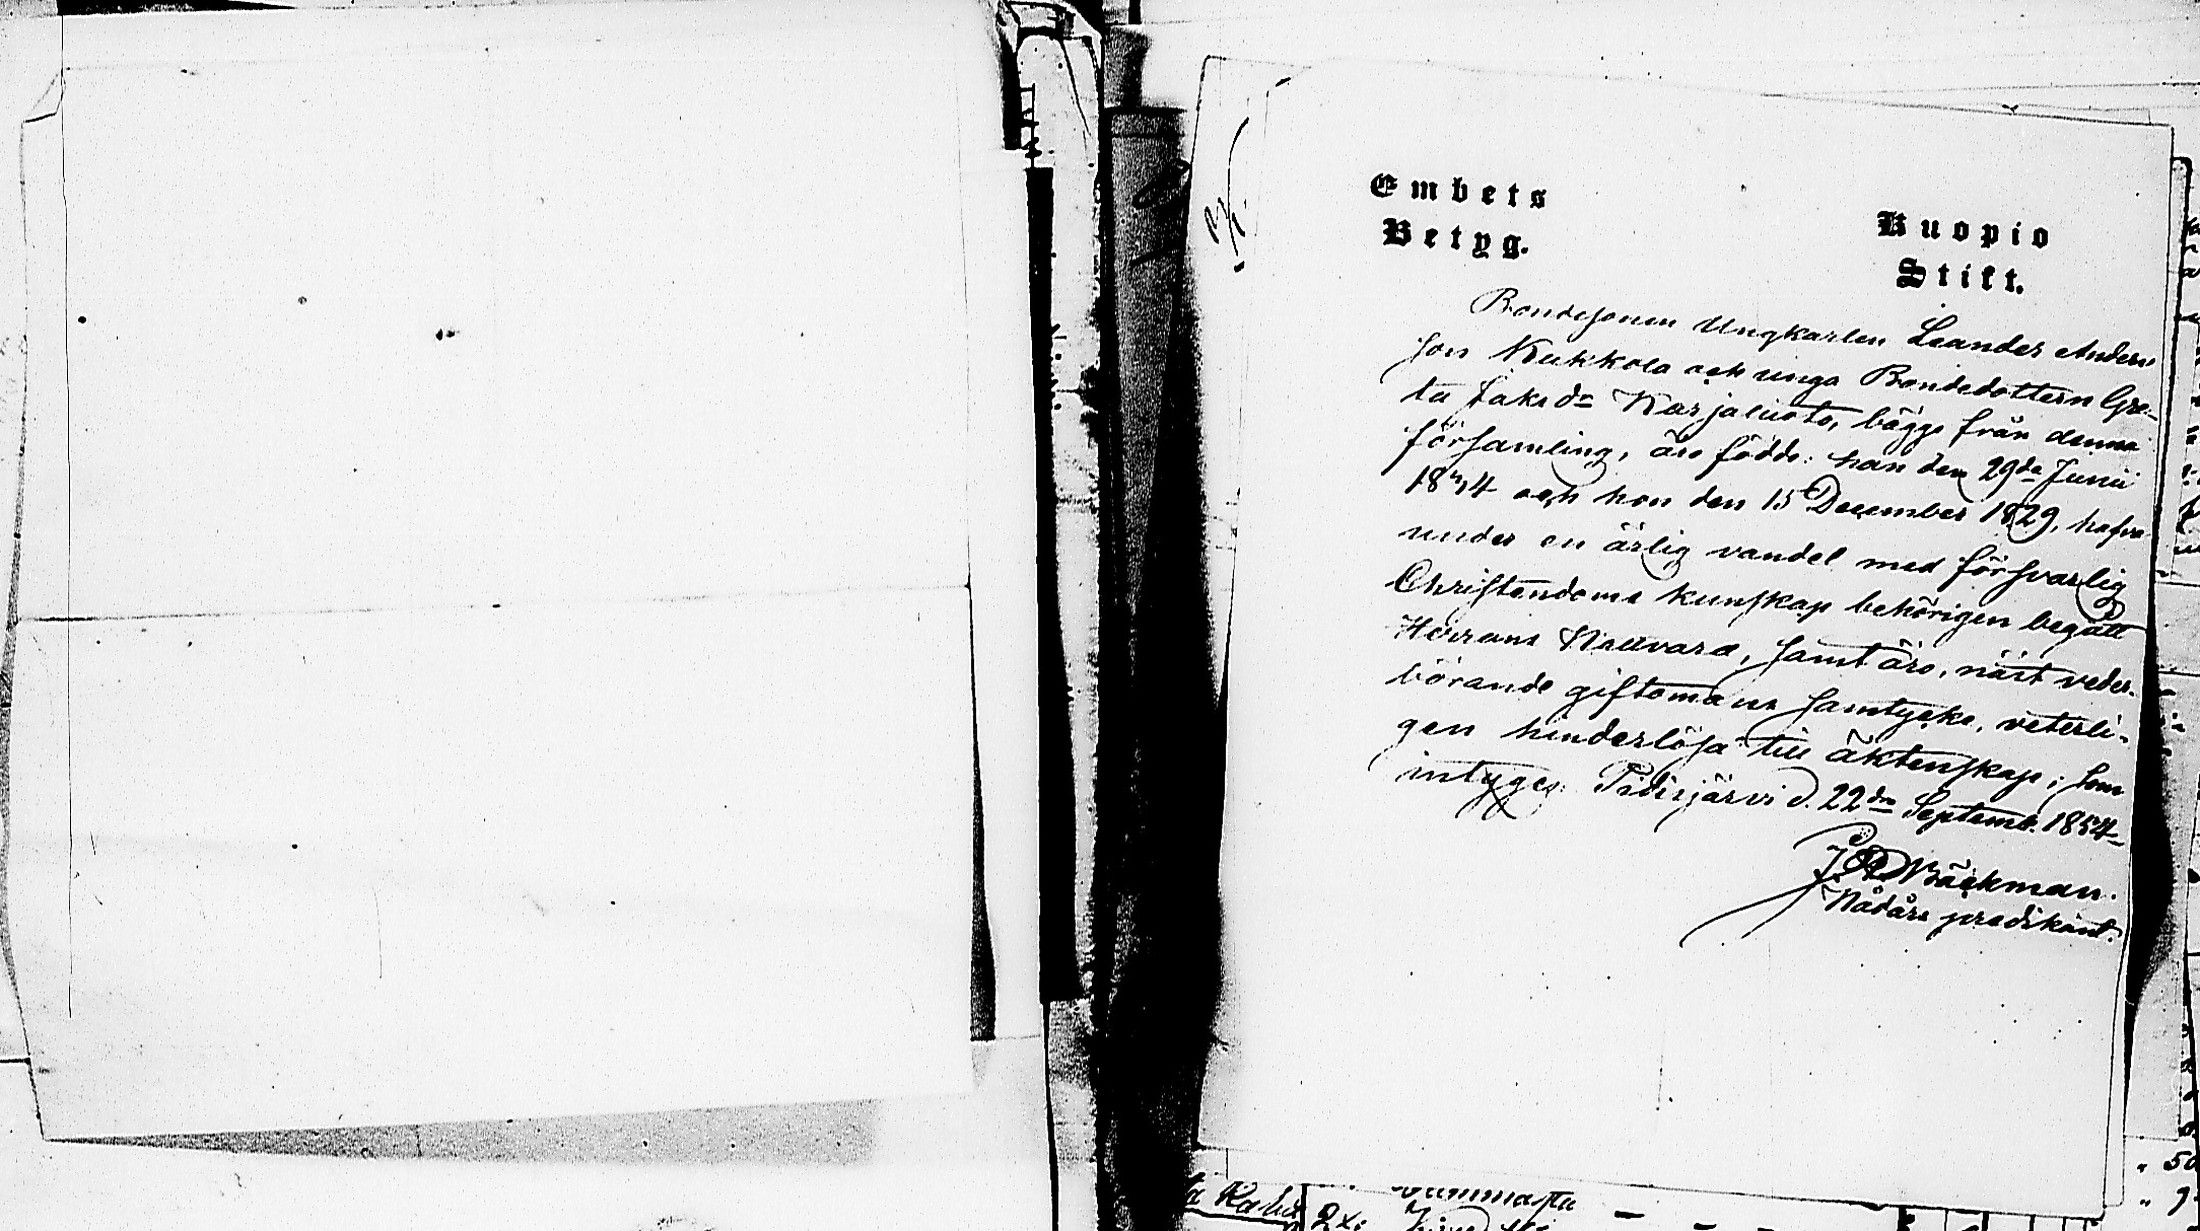 Embets
Betyg.
Kuopio
Stift.
Bondesonen Ungkarlen Leander Anders
son Kukkola och unga Bondedottern Gre-
ta Jaksdr Karjaluoto, bägge från denna
församling, äro födde: han den 29de Junii
18 4 och hon den 15 December 1829, hafva
under en ärlig vandel med försvarlig
Christendoms kunskap behörigen begått
Herrans Nattvard, samt äro, näst veder-
börande giftomans samtycke, veterli-
gen hinderlösa till äktenskap; som
intygas: Pidisjärvi d. 22dra Septemb. 1854
J. Bäckman.
Nådårs predikant.